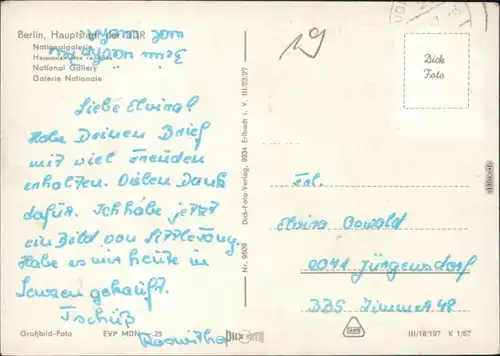 Berlin, Hauptstadt der DDR
Nationalgalerie
Национальная галерея
National Gallery
Galerie Nationale
Liebe Elvira!
Habe Deinen Brief
mit viel Freuden
erhalten. Vielen Dank
dafür. Ich habe jetzt
ein Bild von
Habe es mir heute in
gekauft.
Tschüß
Roswitha
Großbild-Foto
EVP MDN -.25
Nr. 9609 Dick-Foto-Verlag, 9634 Erlbach i. V. III/23/27
DICK FOTO
19
Dick
Foto
Frl.
Elvira Oswald
2041 Jürgensdorf
BBS Zimmer 48
III/18/197 K 1/67